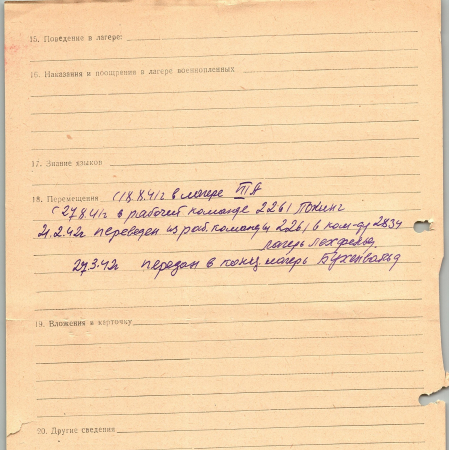 15. Поведение в лагере:
16. Наказания и поощрения в лагере военнопленных
17. Знание языков
18. Перемещения С 18.8.41г в лагере VII А
С 27.8.41г в рабочей команде 2261 Покинг
21.2.42г переведен из раб. команды 2261 в ком-ду 2834
лагерь Лехфельд
27.3.42г передан в конц лагерь Бухенвальд
19. Вложения в карточку
20. Другие сведения